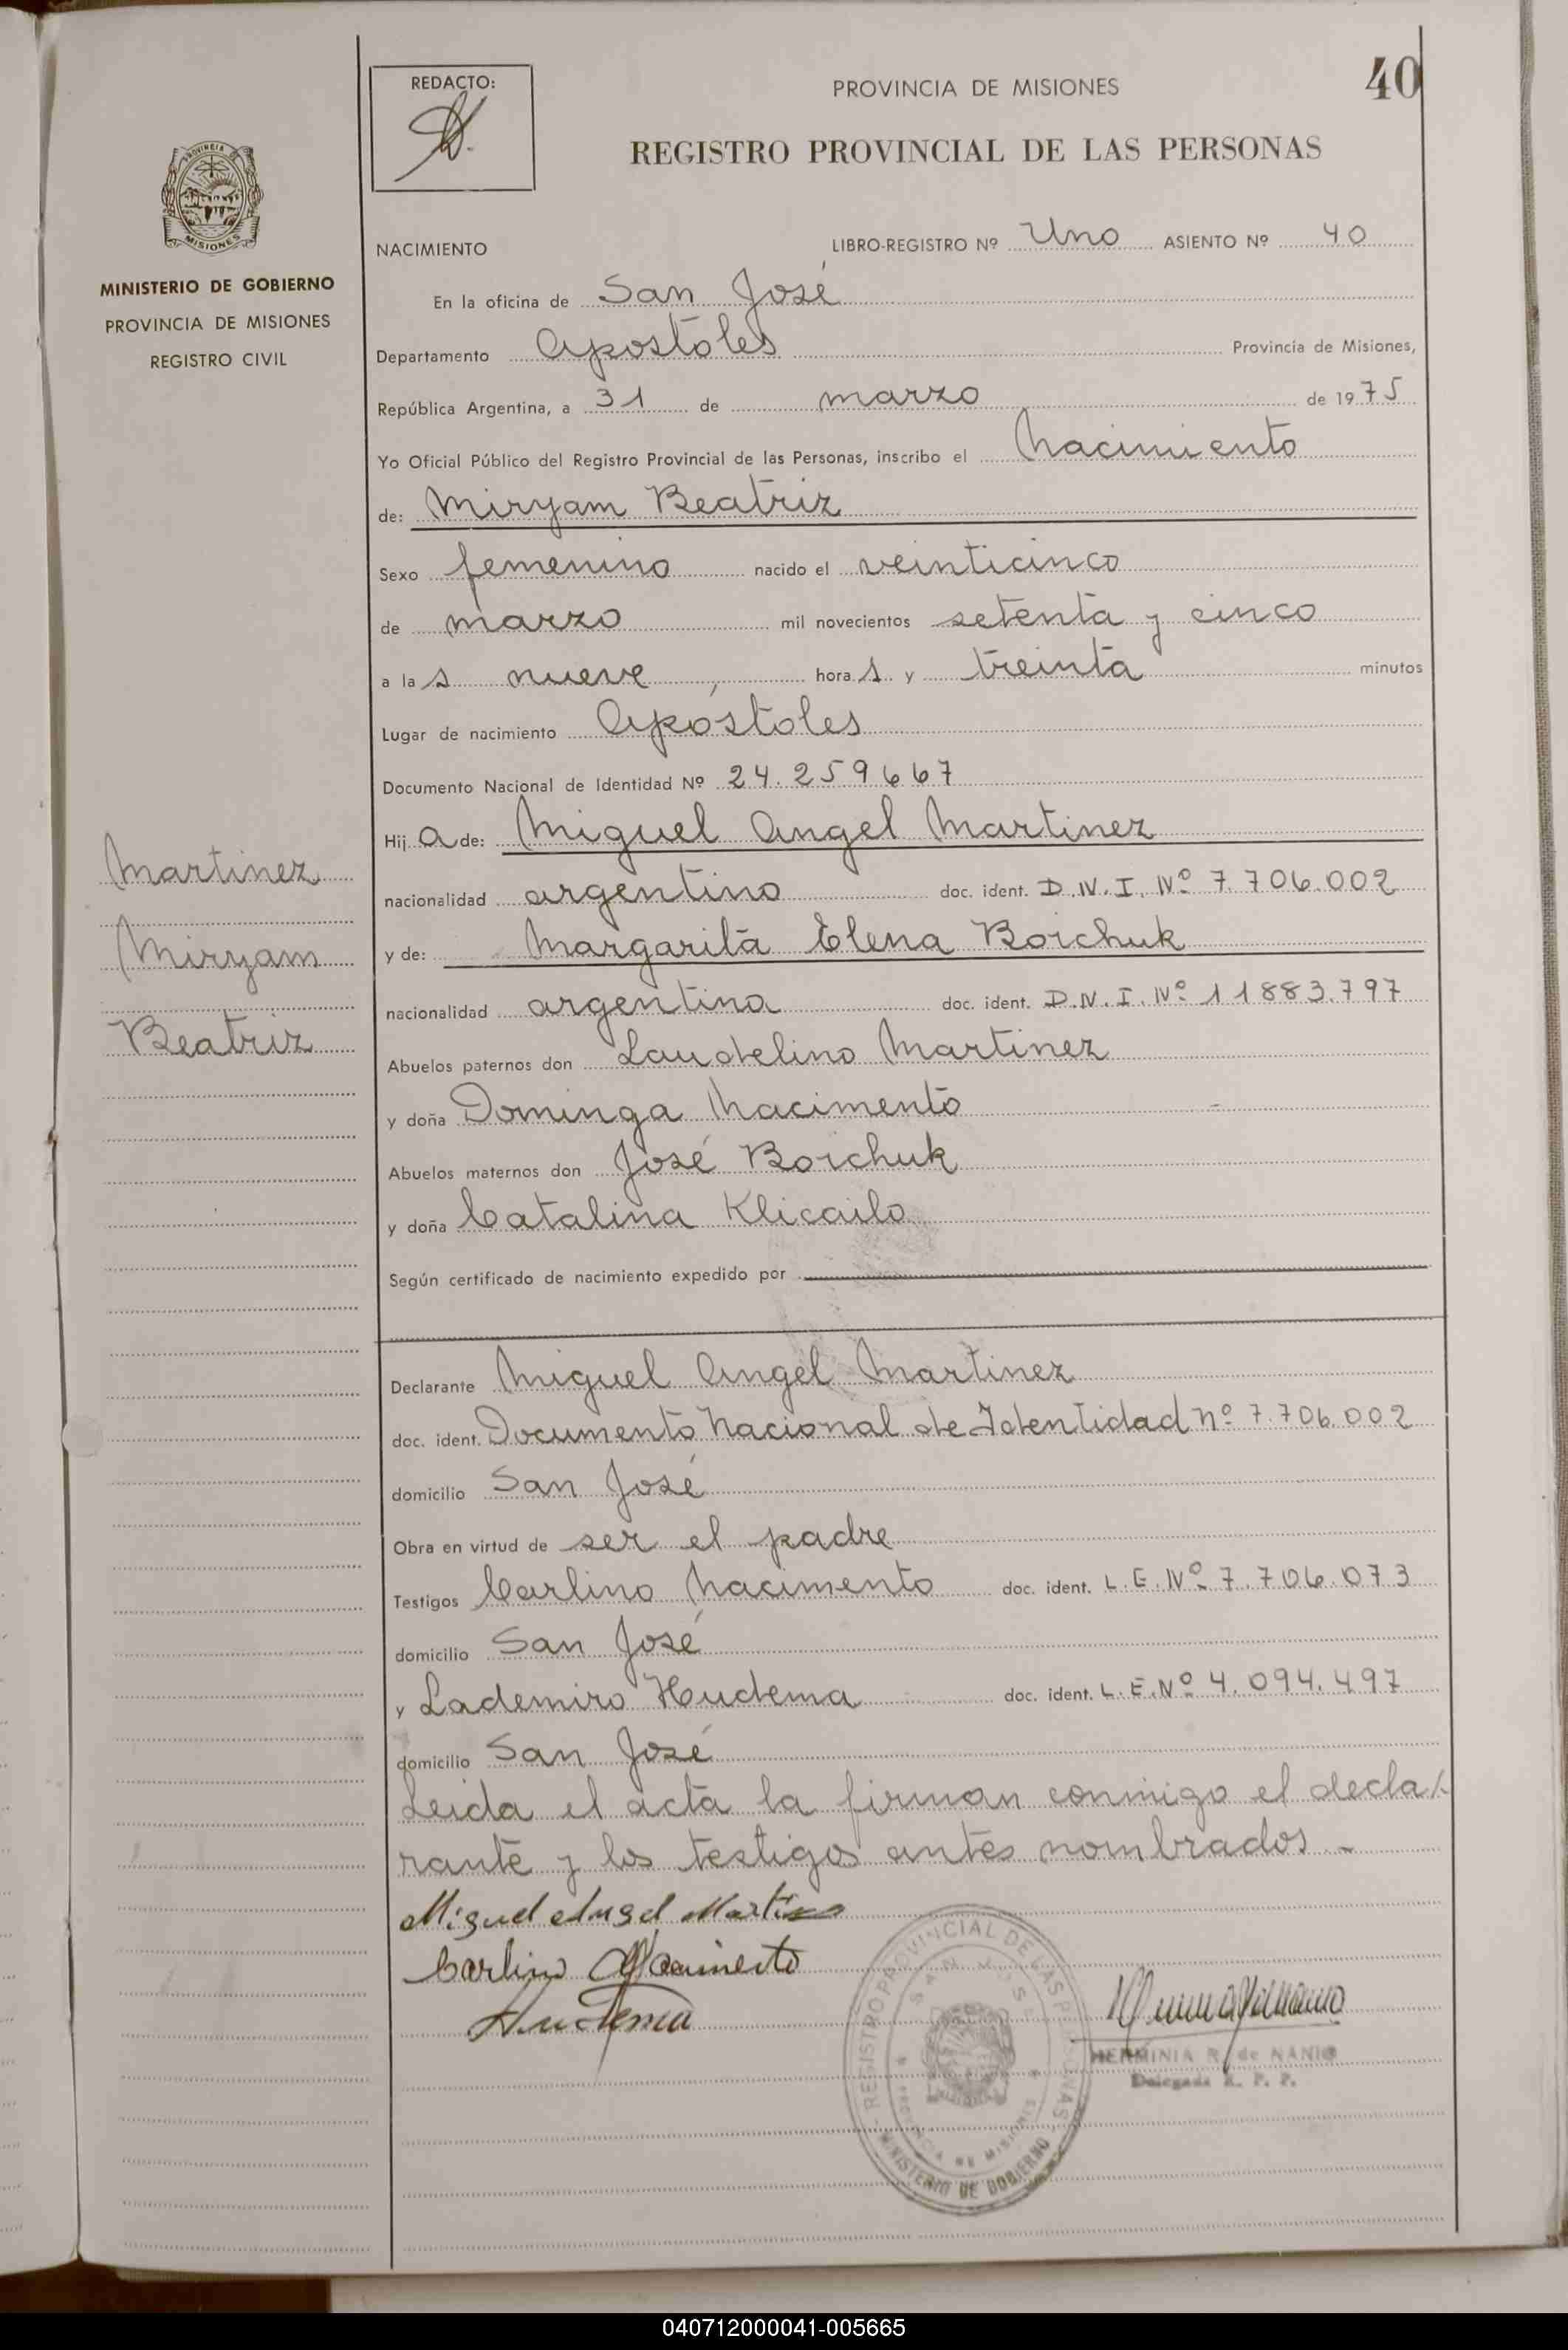 REDACTO:
PROVINCIA DE MISIONES
40
REGISTRO PROVINCIAL DE LAS PERSONAS
PROVINCIA DE
MISIONES
MINISTERIO DE GOBIERNO
PROVINCIA DE MISIONES
REGISTRO CIVIL
NACIMIENTO
LIBRO-REGISTRO Nº Uno ASIENTO Nº 40
En la oficina de San José
Departamento Apostoles Provincia de Misiones,
República Argentina, a 31 de marzo de 1975
Yo Oficial Público del Registro Provincial de las Personas, inscribo el Nacimiento
de: Miryam Beatriz
Sexo femenino nacido el veinticinco
de marzo mil novecientos setenta y cinco
a la s nueve hora s y treinta minutos
Lugar de nacimiento Apóstoles
Documento Nacional de Identidad Nº 24.259667
Hij a de: Miguel Angel Martinez
nacionalidad argentino doc. ident. D.N.I. Nº 7.706.002
y de: Margarita Elena Boichuk
nacionalidad argentina doc. ident. D.N.I. Nº 11883.797
Abuelos paternos don Laudelino Martinez
y doña Dominga Nacimento
Abuelos maternos don José Boichuk
y doña Catalina Klicailo
Según certificado de nacimiento expedido por
Martinez
Miryam
Beatriz
Declarante Miguel Angel Martinez
doc. ident. Documento Nacional de Identidad Nº 7.706.002
domicilio San José
Obra en virtud de ser el padre
Testigos Carlino Nacimento doc. ident. L.E. Nº 7.706.073
domicilio San José
y Lademiro Hudema doc. ident. L.E. Nº 4.094.497
domicilio San José
Leida el acta la firman conmigo el decla/.
rante y los testigos antes nombrados. -
Miguel Angel Martinez
Carlino Nacimento
Hudema
REGISTRO PROVINCIAL DE LAS PERSONAS
SAN JOSE
PROVINCIA DE MISIONES
MINISTERIO DE GOBIERNO
HERMINIA R. de NANIO
Delegada R. P. P.
040712000041-005665